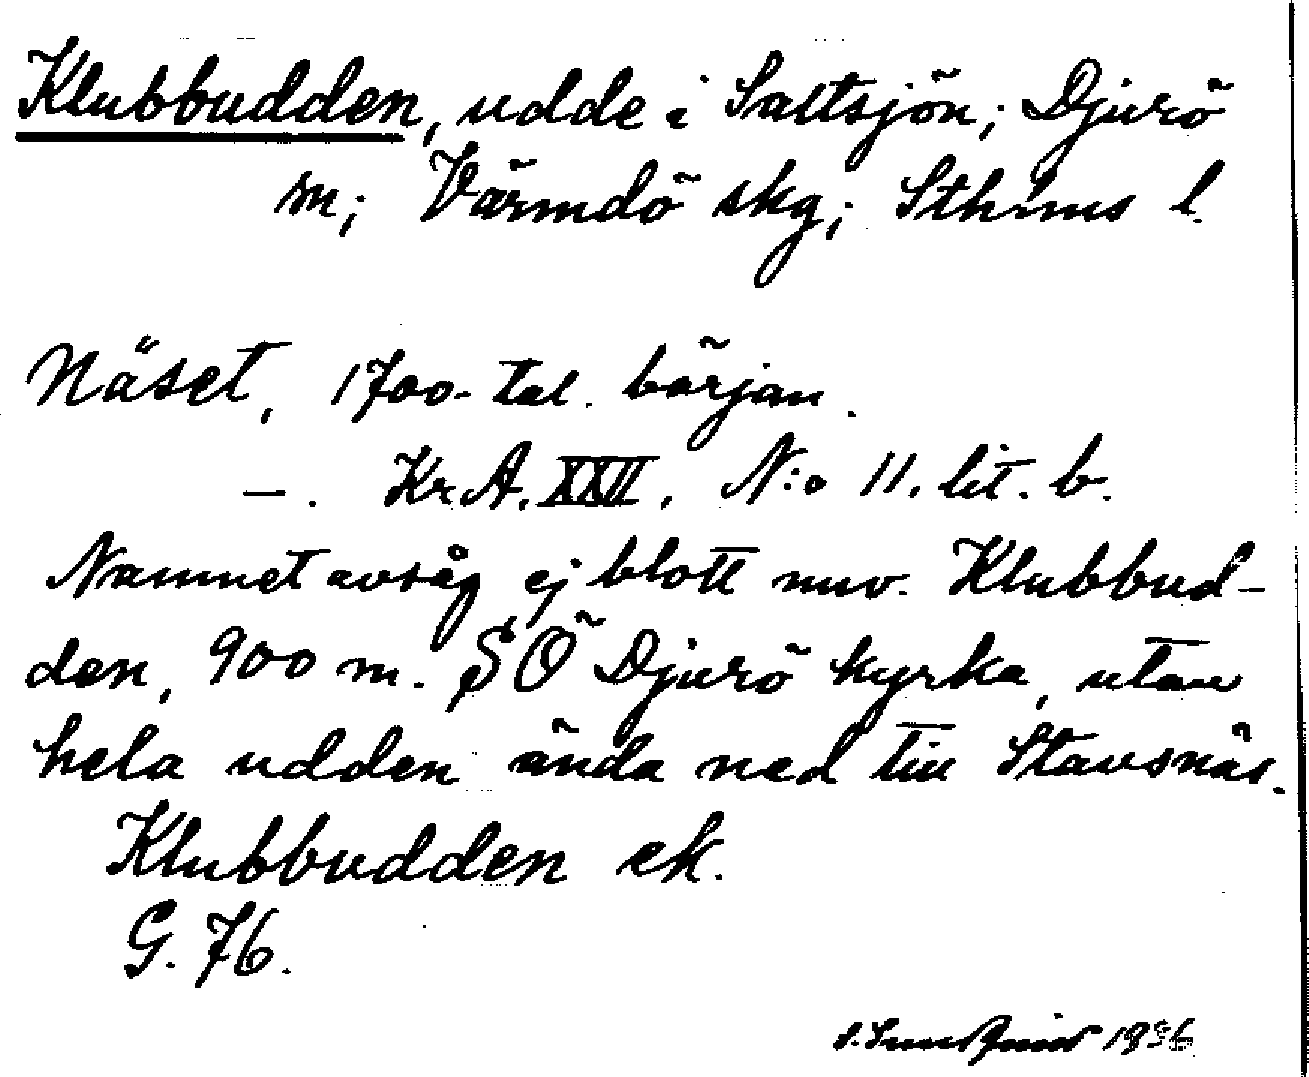 Klubbudden, udde i Saltsjön; Djurö
m; Värmdö skg; Sthlms l.
Näset, 1700-tal. början.
—. Kr.A. XXII. N:o 11. lit. b.
Namnet avsåg ej blott nuv. Klubbud-
den, 900 m. SÖ Djurö kyrka, utan
hela udden ända ned till Stavsnäs.
Klubbudden ek.
G. 76.
1936